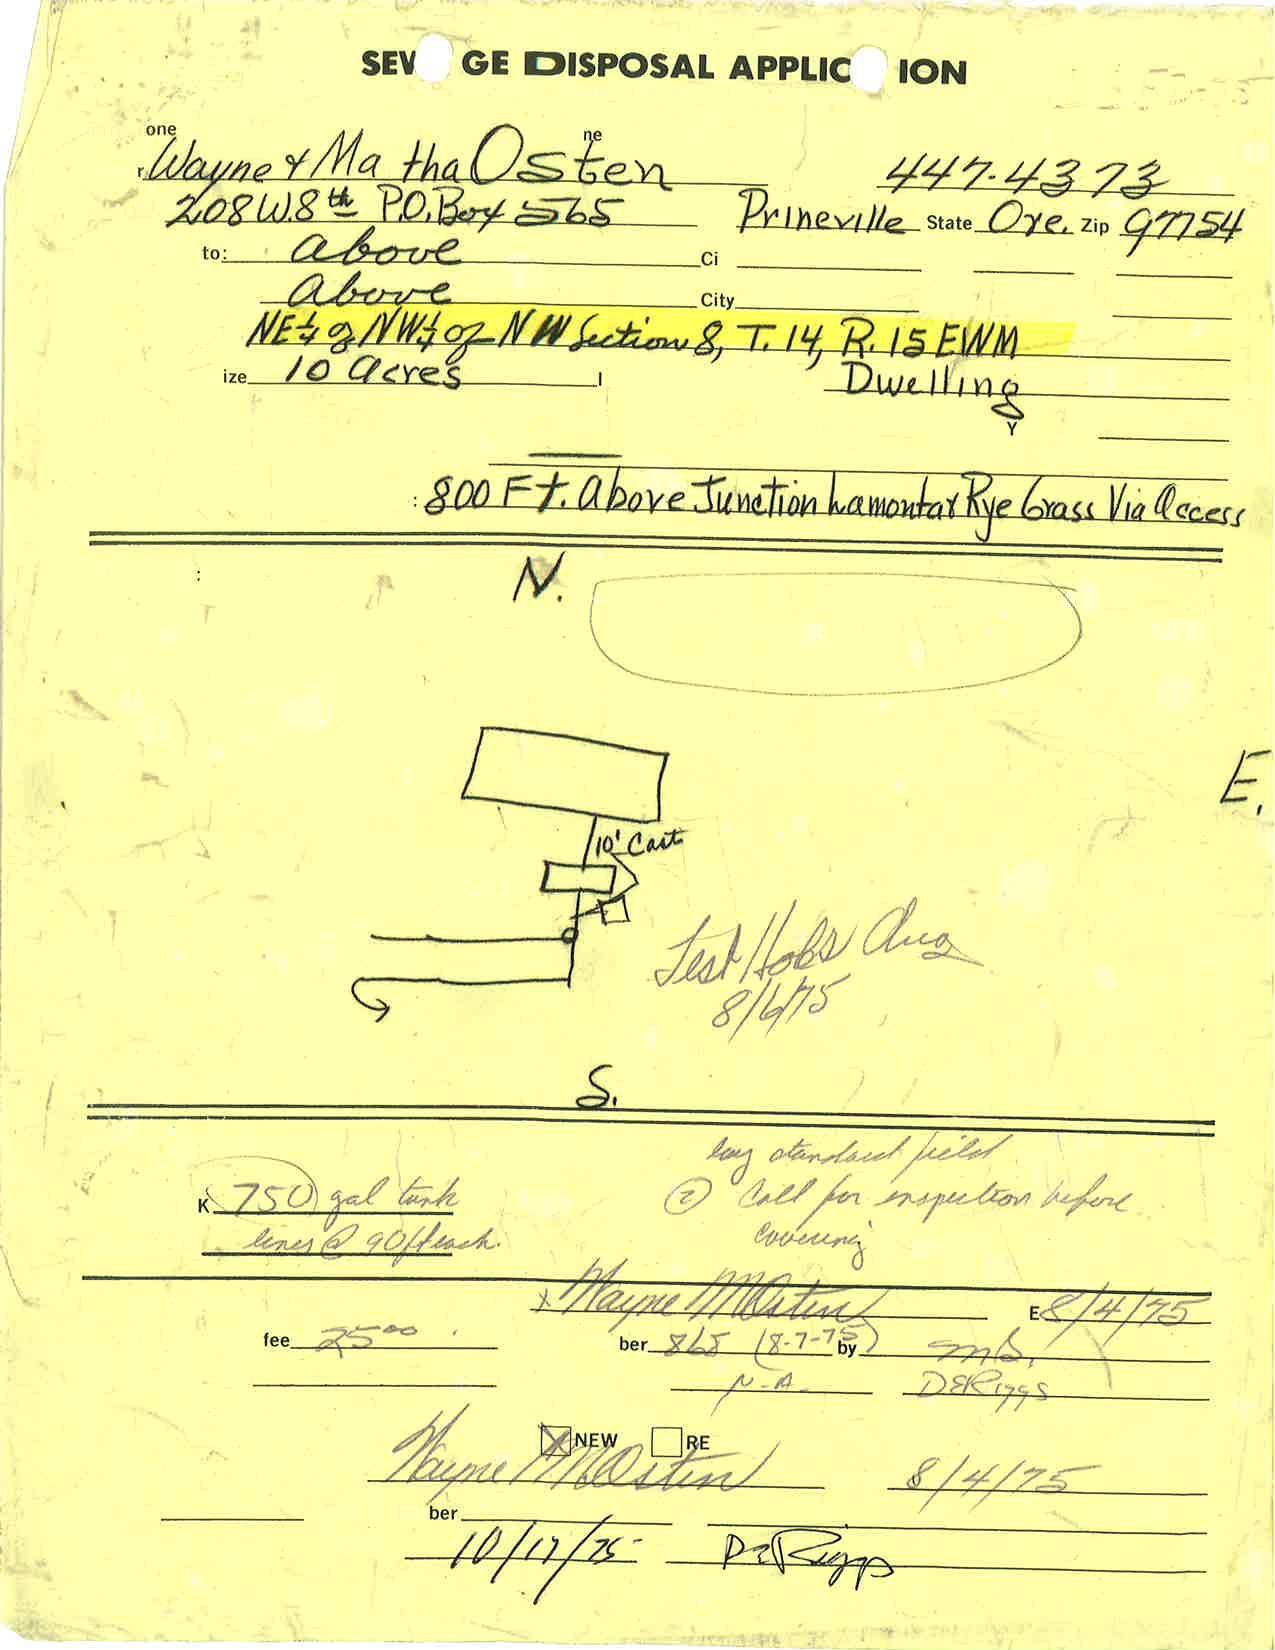 SEW GE DISPOSAL APPLIC ION
one ne
r Wayne & Ma tha Osten 447-4373
208 W. 8th P.O. Box 565 Prineville State Ore. Zip 97754
to: Above Ci
Above City
NE¼ of NW¼ of NW Section 8, T. 14, R. 15 EWM
ize 10 Acres l Dwelling
Y
: 800 Ft. Above Junction Lamontar Rye Grass Via Access
:
N.
E.
10' Cast
Test Holes Aug
8/6/75
S.
lay standard field
K 750 gal tank ② Call for inspection before
lines @ 90ft each. covering
x Wayne M Osten E 8/4/75
fee 25.00 ber 868 (8-7-75) by MS.
N.A. DERiggs
NEW RE
Wayne M Osten 8/4/75
ber
10/17/75 DERiggs